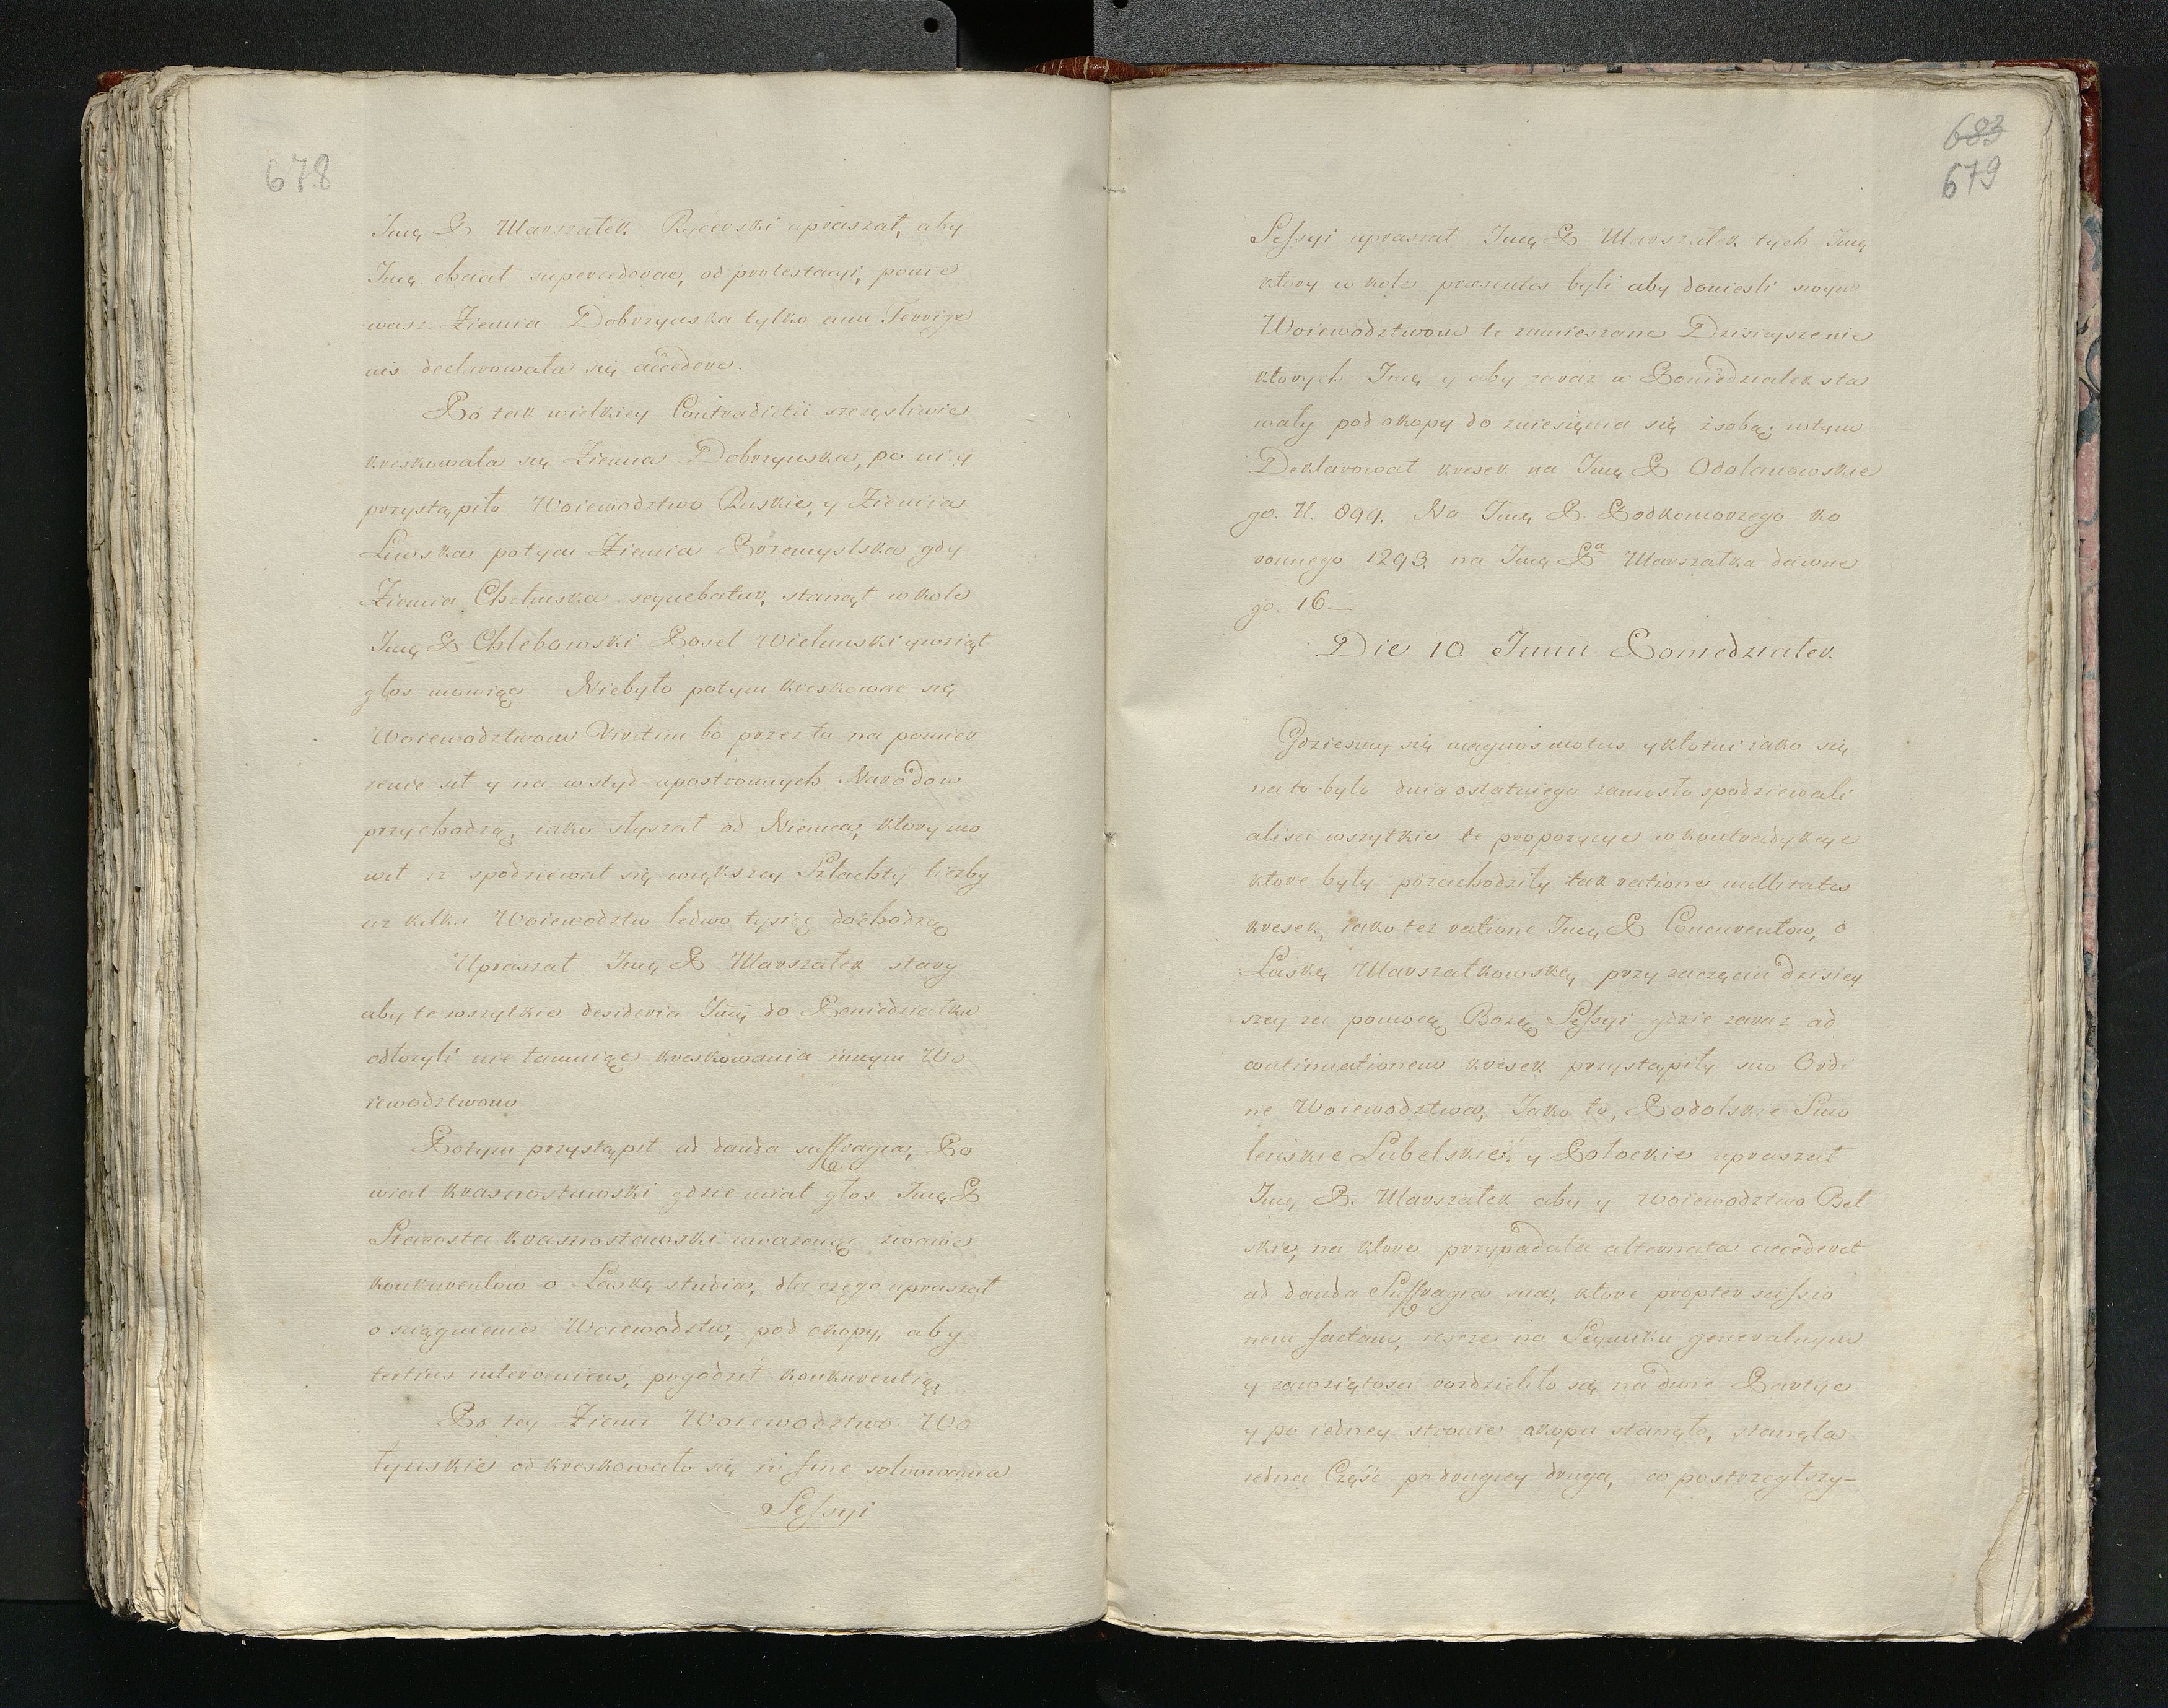 678
Imę P Marszałek Rycerski upraszał, aby
Imę chciał supercedować, od protestacyi, ponie
wasz Ziemia Dobrzynska tylko cum Terrige
nis declarowała się accedere.
Po tak wielkiey Contradictii szczęsliwie
kreskowała się Ziemia Dobrzynska, po niey
przystąpiło Woiewodztwo Ruskie, y Ziemia
Liwska potym Ziemia Przemyslska gdy
Ziemia Chełmska sequebatur, stanął w kole
Imę P Chlebowski Poseł Wielunski y wziął
głos mowiąc Niebyło potym kreskować się
Woiewodztwom Viritim bo przez to na pomier
zenie sił y na wstyd upostronnych Narodow
przychodzą, iako słyszał od Niemca, ktory mo
wił iż spodziewał się większey Szlachty liczby
aż kilka Woiewodztw ledwo tysiąc dochodzą
Upraszał Imę P Marszałek stary
aby te wszytkie desideria Imę do Poniedziałku
odłożyli nie tamuiąc kreskowania innym Wo
iewodztwom
Potym przystąpił ad danda suffragia, Po
wiat Krasnostawski gdzie miał głos Imę P
Starosta Krasnostawski uważaiąc żwawe
konkurentow o Laskę studia, dla czego upraszał
o sciągnienie Woiewodztw, pod okopy, aby
tertius interveniens, pogodził konkurentią,
Po tey Ziemi Woiewodztwo Wo
łynskie odkreskowało się in fine solwowania
Sessyi
683
679
Sessyi upraszał Imę P Marszałek tych Imę
ktory w kole praesentes byli aby doniesli swym
Woiewodztwom te zamieszane Dzisieyszenie
ktorych Imę y aby zaraz w Poniedziałek sta
wały pod okopy do zniesięnia się z sobą; w tym
Deklarował kresek na Imę P Odolanowskie
go. N. 899. Na Imę P. Podkomorzego ko
ronnego 1293. na Imę Pa Marszałka dawne
go. 16—
Die 10 Junii Poniedziałek.
Gdziesmy się magnos motus y kłotni iako się
na to było dnia ostatniego zaniosło spodziewali
alisci wszytkie te proporycye w kontradykcye
ktore były przechodziły tak ratione nullitates
kresek, iako też ratione Imę P Concurentow, o
Laskę Marszałkowską, przy zaczęciu dzisiey
szey za pomocą Bożą Sessyi gdzie zaraz ad
continuationem kresek przystąpiły suo Ordi
ne Woiewodztwa, Jako to, Podolskie Smo
leńskie Lubelskie y Połockie upraszał
Imę P. Marszałek aby y Woiewodztwo Bel
skie, na ktore przypadała alternata accederet
ad danda Suffragia sua, ktore propter scissio
nem factam, iescze na Seymiku generalnym
y zawziętosci rozdzieliło się na dwie Partye
y po iedney stronie okopu stanęło, stanęła
iedna Część po drugiey druga, co postrzegłszy—